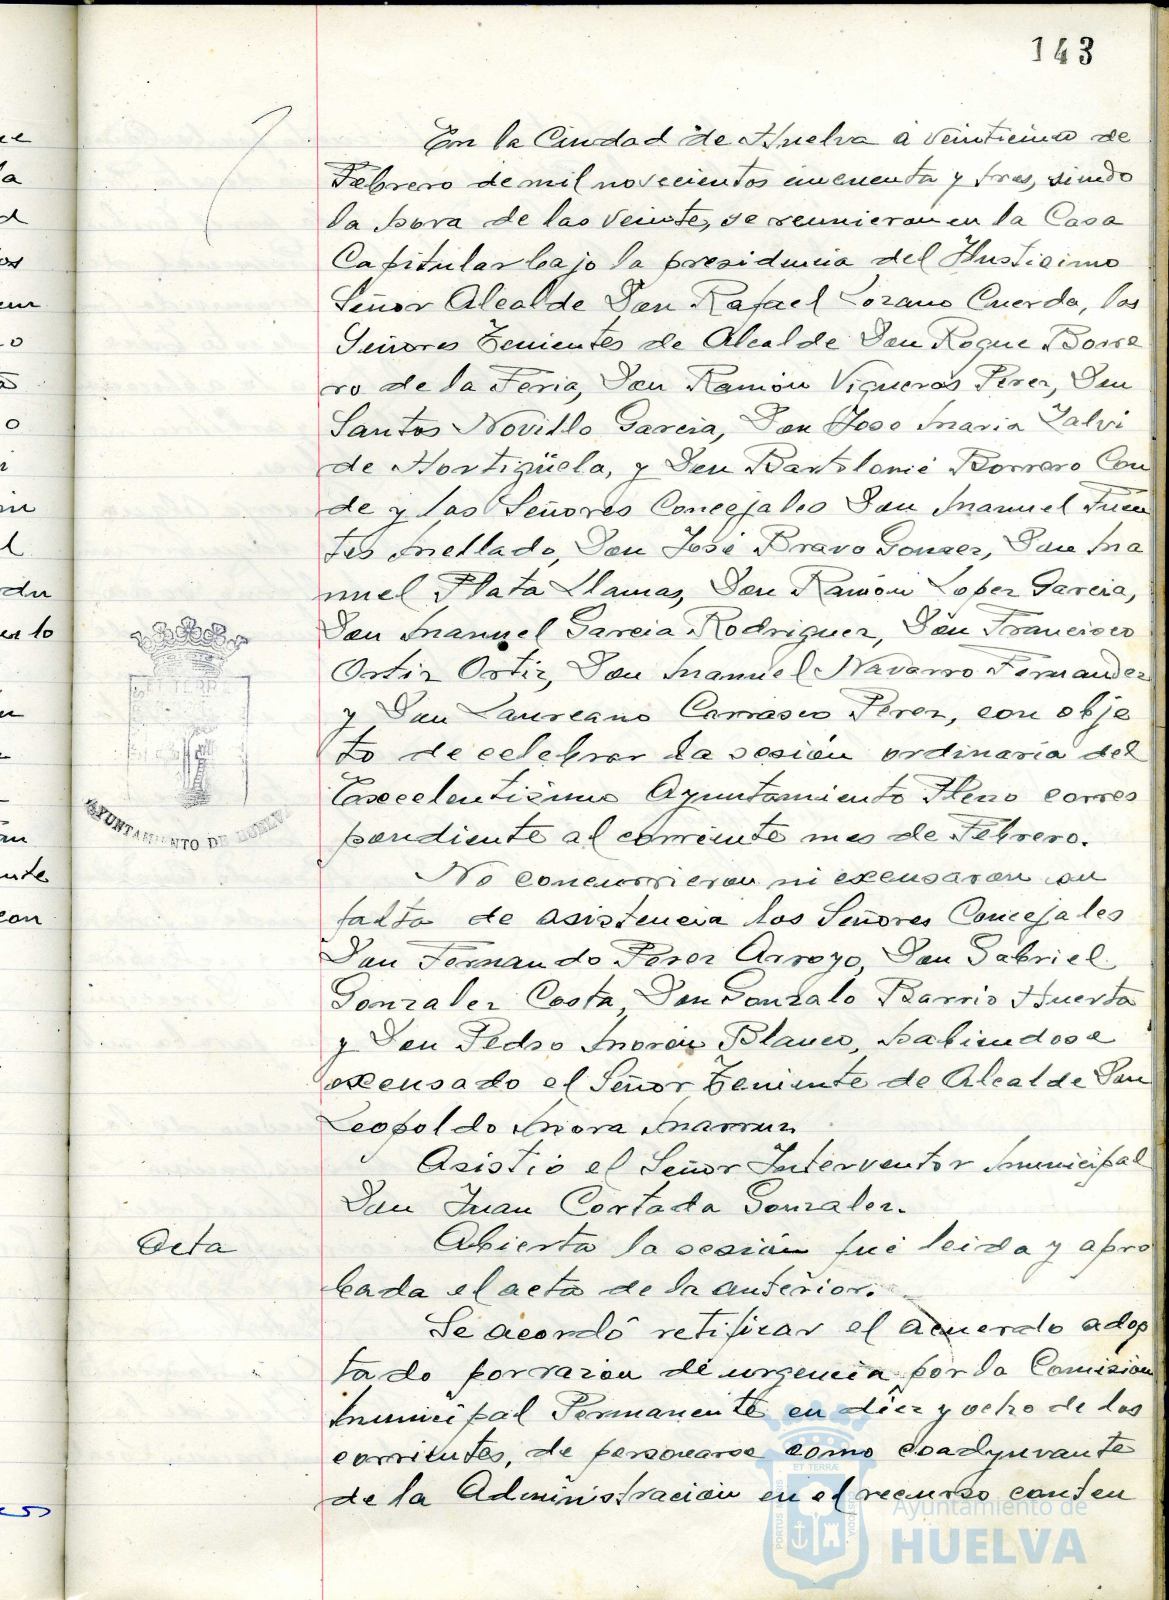 143
En la Ciudad de Huelva á veinticinco de
Febrero de mil novecientos cincuenta y tres, siendo
la hora de las veinte, se reunieron en la Casa
Capitular bajo la presidencia del Ilustrisimo
Señor Alcalde Don Rafael Lozano Cuerda, los
Señores Tenientes de Alcalde Don Roque Borre
ro de la Feria, Don Ramón Vigueras Perez, Don
Santos Novillo Garcia, Don Jose Maria Zalvi
de Hortigüela, y Don Bartolomé Borrero Con
de y los Señores Concejales Don Manuel Fuen
tes Mellado, Don José Bravo Gomez, Don Ma
nuel Plata Llamas, Don Ramón Lopez Garcia,
Don Manuel Garcia Rodriguez, Don Francisco
Ortiz Ortiz, Don Manuel Navarro Fernandez
y Don Laureano Carrasco Perez, con obje
to de celebrar la sesión ordinaria del
Excelentisimo Ayuntamiento Pleno corres
pondiente al corriente mes de Febrero.
AYUNTAMIENTO DE HUELVA
No concurrieron ni excusaron su
falta de asistencia los Señores Concejales
Don Fernando Perez Arroyo, Don Gabriel
Gonzalez Costa, Don Gonzalo Barrio Huerta
y Don Pedro Morón Blanco, habiendose
excusado el Señor Teniente de Alcalde Don
Leopoldo Mora
Asistió el Señor Interventor Municipal
Don Juan Cortada Gonzalez.
Acta
Abierta la sesión fué leida y apro
bada el acta de la anterior.
Se acordó ratificar el acuerdo adop
tado por razon de urgencia por la Comisión
Municipal Permanente en diez y ocho de los
corrientes, de personarse como coadyuvante
de la Administración en el recurso conten
ET TERRAE
PORTUS MARIS
CUSTODIA
Ayuntamiento de
HUELVA